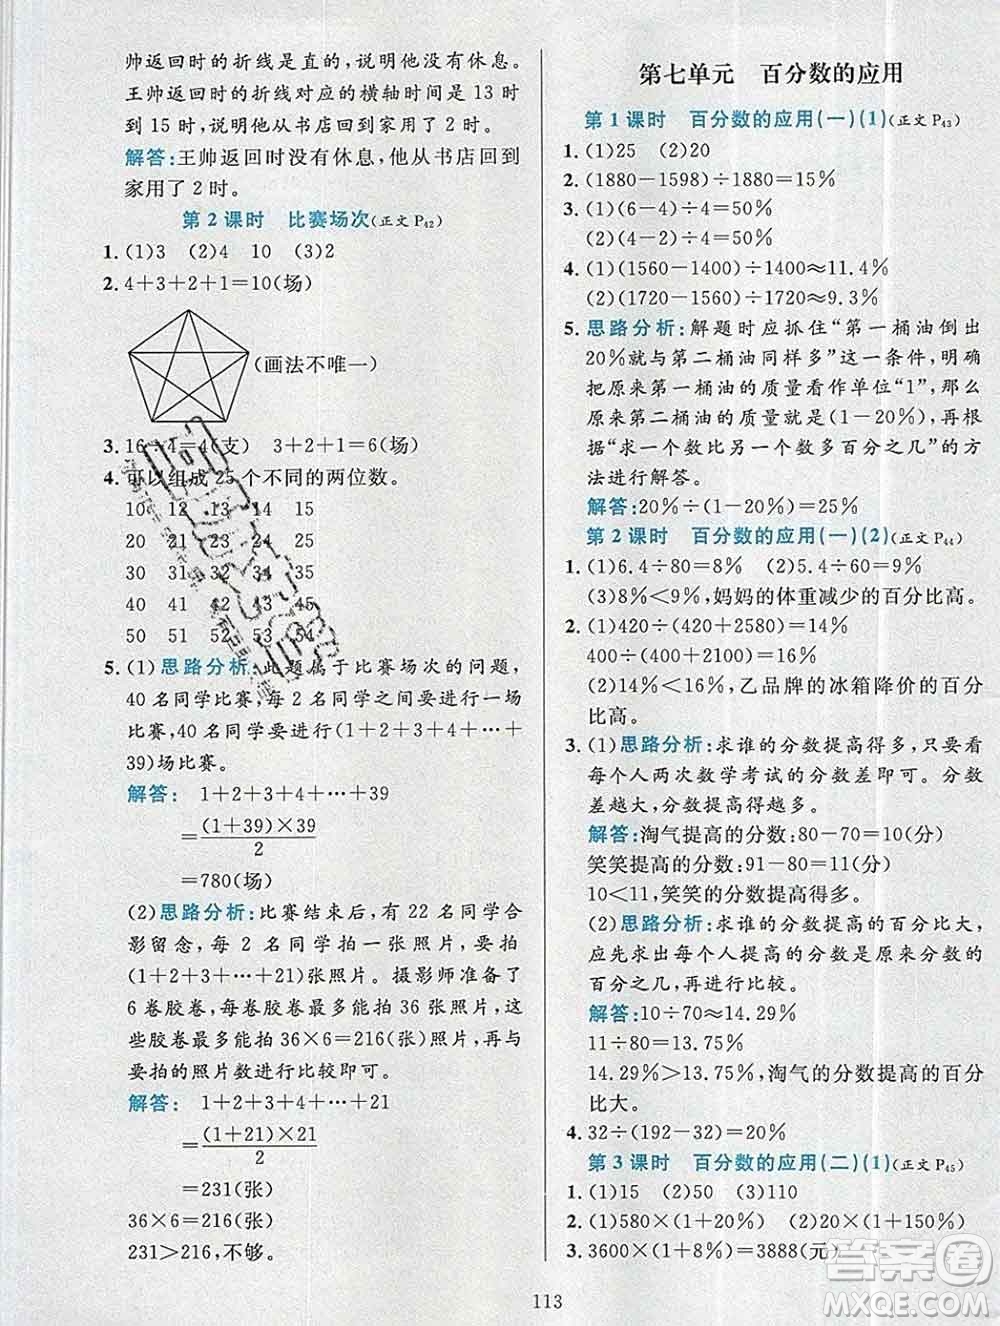 帅返回时的折线是直的,说明他没有休息。
王帅返回时的折线对应的横轴时间是 13 时
到 15 时,说明他从书店回到家用了 2 时。
解答:王帅返回时没有休息,他从书店回到
家用了 2 时。
第 2 课时 比赛场次(正文 P42)
1. (1)3 (2)4 10 (3)2
2. 4+3+2+1=10(场)
(画法不唯一)
3. 16÷4=4(支) 3+2+1=6(场)
4. 可以组成 25 个不同的两位数。
10 12 13 14 15
20 21 23 24 25
30 31 32 34 35
40 41 42 43 45
50 51 52 53 54
5. (1)思路分析:此题属于比赛场次的问题,
40 名同学比赛,每 2 名同学之间要进行一场
比赛,40 名同学要进行(1+2+3+4+⋯+
39)场比赛。
解答: 1+2+3+4+⋯+39
=(1+39)×39/2
=780(场)
(2)思路分析:比赛结束后,有 22 名同学合
影留念,每 2 名同学拍一张照片,要拍
(1+2+3+4+⋯+21)张照片。摄影师准备了
6 卷胶卷,每卷胶卷最多能拍 36 张照片,这
些胶卷最多能拍 36×6=216(张)照片,再与
要拍的照片数进行比较即可。
解答: 1+2+3+4+⋯+21
=(1+21)×21/2
=231(张)
36×6=216(张)
231>216,不够。
第七单元 百分数的应用
第 1 课时 百分数的应用(一)(1)(正文 P43)
1. (1)25 (2)20
2. (1880-1598)÷1880=15%
3. (1)(6-4)÷4=50%
(2)(6-4)÷4=50%
4. (1)(1560-1400)÷1400≈11.4%
(2)(1720-1560)÷1720≈9.3%
5. 思路分析:解题时应抓住“第一桶油倒出
20%就与第二桶油同样多”这一条件,明确
把原来第一桶油的质量看作单位“1”,那么
原来第二桶油的质量就是(1-20%),再根
据“求一个数比另一个数多百分之几”的方
法进行解答。
解答:20%÷(1-20%)=25%
第 2 课时 百分数的应用(一)(2)(正文 P44)
1. (1)6.4÷80=8% (2)5.4÷60=9%
(3)8%<9%,妈妈的体重减少的百分比高。
2. (1)420÷(420+2580)=14%
400÷(400+2100)=16%
(2)14%<16%,乙品牌的冰箱降价的百分
比高。
3. (1)思路分析:求谁的分数提高得多,只要看
每个人两次数学考试的分数差即可。分数
差越大,分数提高得越多。
解答:淘气提高的分数:80-70=10(分)
笑笑提高的分数:91-80=11(分)
10<11,笑笑的分数提高得多。
(2)思路分析:求谁的分数提高的百分比大,
应先求出每个人提高的分数是原来分数的
百分之几,再进行比较。
解答:10÷70≈14.29%
11÷80=13.75%
14.29%>13.75%,淘气的分数提高的百分
比大。
4. 32÷(192-32)=20%
第 3 课时 百分数的应用(二)(1)(正文 P45)
1. (1)15 (2)50 (3)110
2. (1)580×(1+20%) (2)20×(1+150%)
3. 3600×(1+8%)=3888(元)
113
答案圈
MXQE.COM